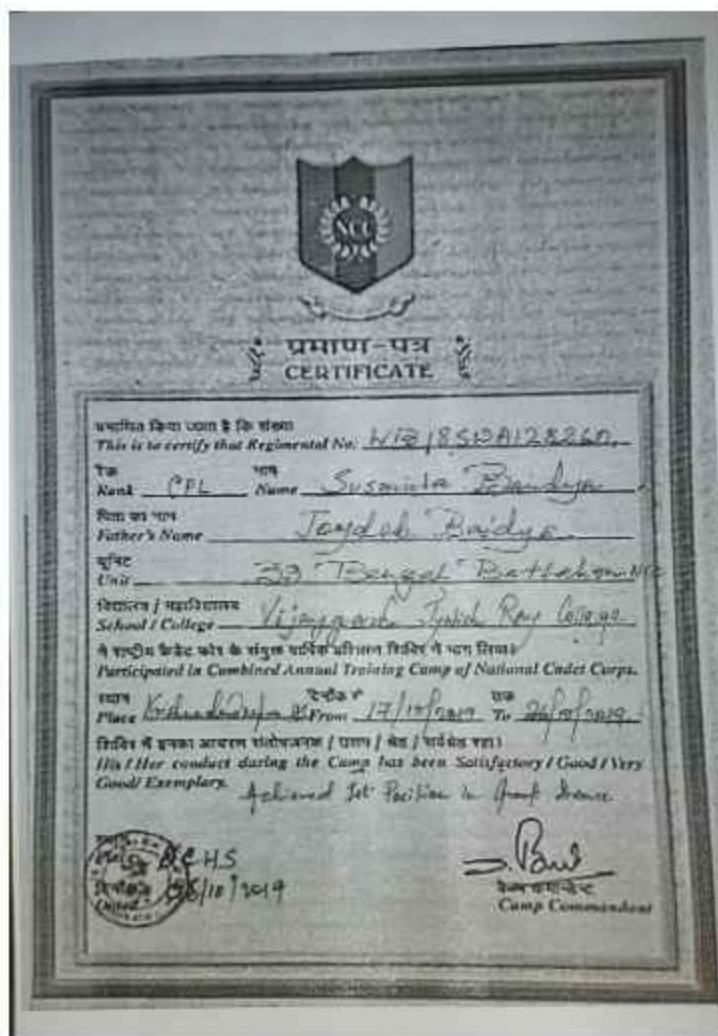 NCC
प्रमाण-पत्र
CERTIFICATE
प्रमाणित किया जाता है कि संख्या
This is to certify that Regimental No.
रैंक नाम
Rank CPL Name Susmita Baidya
पिता का नाम
Father's Name Joydeb Baidya
यूनिट
Unit Bengal Battalion NCC
विद्यालय / महाविद्यालय
School / College Jyotish Ray College
ने राष्ट्रीय कैडेट कोर के संयुक्त वार्षिक प्रशिक्षण शिविर में भाग लिया।
Participated in Combined Annual Training Camp of National Cadet Corps.
स्थान दिनाँक से तक
Place From 17/10/2019 To 26/10/2019
शिविर में इनका आचरण संतोषजनक / उत्तम / श्रेष्ठ / सर्वश्रेष्ठ रहा।
His / Her conduct during the Camp has been Satisfactory / Good / Very
Good / Exemplary. Achieved 1st Position in Group
दिनाँक
Dated /10/2019
कैम्प कमान्डेन्ट
Camp Commandent